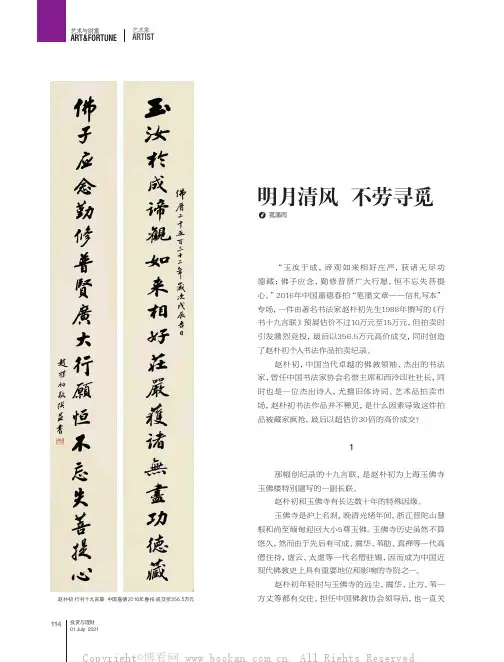 艺术与财富
ART&FORTUNE
艺术家
ARTIST
玉汝於成諦觀如来相好莊嚴獲諸無盡功德藏
佛曆二千五百三十二年歲次戊辰吉日
佛子应念勤修普賢廣大行願恒不忘失菩提心
趙樸初敬撰並書
赵朴初 行书十九言联 中国嘉德2016年春拍 成交价356.5万元
明月清风 不劳寻觅
“玉汝于成，谛观如来相好庄严，获诸无尽功
德藏；佛子应念，勤修普贤广大行愿，恒不忘失菩提
心。”2016年中国嘉德春拍“笔墨文章——信札写本”
专场，一件由著名书法家赵朴初先生1988年撰写的《行
书十九言联》预展估价不过10万元至15万元，但拍卖时
引发激烈竞投，最后以356.5万元高价成交，同时创造
了赵朴初个人书法作品拍卖纪录。
赵朴初，中国当代卓越的佛教领袖、杰出的书法
家，曾任中国书法家协会名誉主席和西泠印社社长，同
时也是一位杰出诗人，尤擅旧体诗词。艺术品拍卖市
场，赵朴初书法作品并不稀见，是什么因素导致这件拍
品被藏家疯抢，最后以超估价30倍的高价成交？
1
那幅创纪录的十九言联，是赵朴初为上海玉佛寺
玉佛楼特别题写的一副长联。
赵朴初和玉佛寺有长达数十年的特殊因缘。
玉佛寺是沪上名刹，晚清光绪年间，浙江普陀山慧
根和尚至缅甸迎回大小5尊玉佛。玉佛寺历史虽然不算
悠久，然而由于先后有可成、震华、苇舫、真禅等一代高
僧住持，虚云、太虚等一代名僧驻锡，因而成为中国近
现代佛教史上具有重要地位和影响的寺院之一。
赵朴初年轻时与玉佛寺的远尘、震华、止方、苇一
方丈等都有交往，担任中国佛教协会领导后，也一直关
114
投资与理财
01 July 2021
Copyright©博看网 www.bookan.com.cn. All Rights Reserved